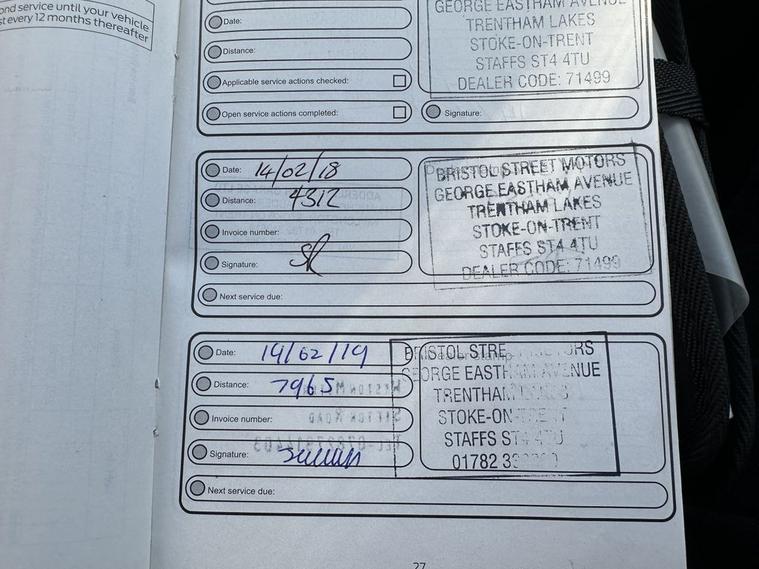 ond service until your vehicle
st every 12 months thereafter
Date:
Distance:
Applicable service actions checked:
Open service actions completed:
GEORGE EASTHAM AVENUE
TRENTHAM LAKES
STOKE-ON-TRENT
STAFFS ST4 4TU
DEALER CODE: 71499
Signature:
Date: 14/02/18
Distance: 4312
Invoice number:
Signature:
Next service due:
BRISTOL STREET MOTORS
GEORGE EASTHAM AVENUE
TRENTHAM LAKES
STOKE-ON-TRENT
STAFFS ST4 4TU
DEALER CODE: 71499
Date: 14/02/19
Distance: 7965
Invoice number:
Signature:
Next service due:
BRISTOL STRE ORS
GEORGE EASTHAM AVENUE
TRENTHAM
STOKE-ON-TRENT
STAFFS ST4 4TU
01782 33
27